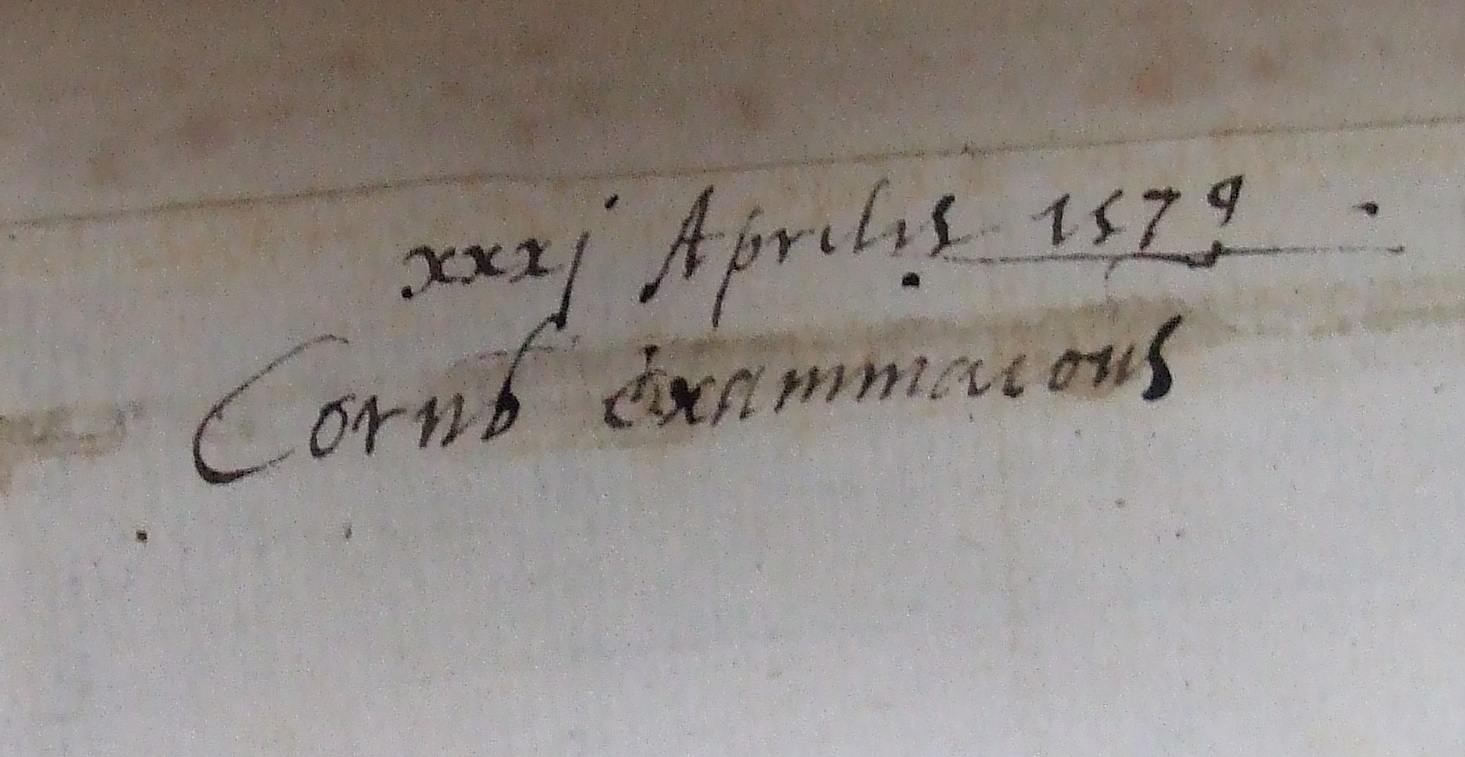 xxxj Aprilis 1579
Cornb Examinacons